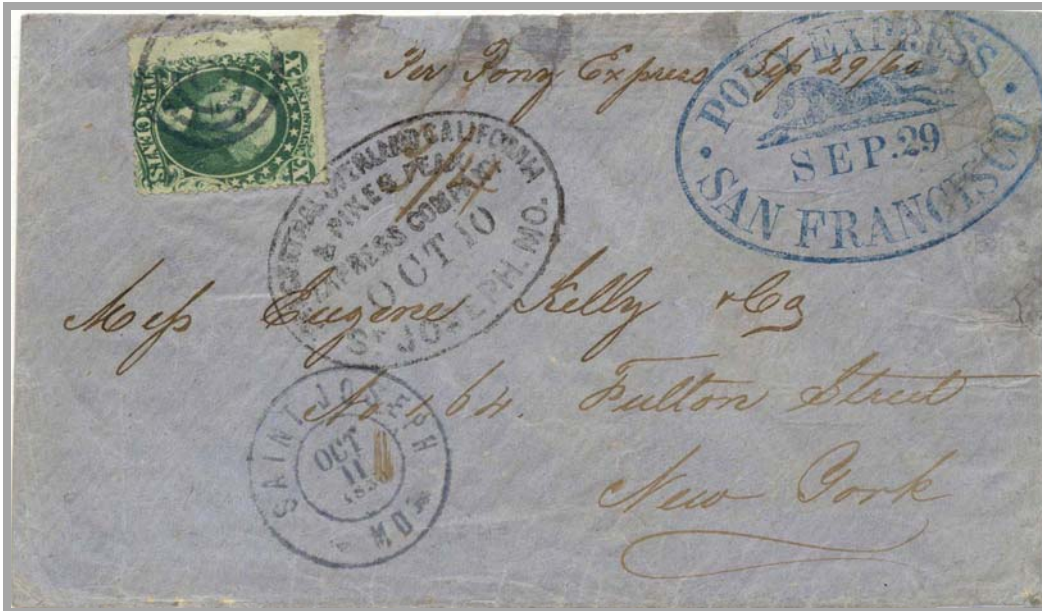 Per Pony Express Sep 29/60
PONY EXPRESS
SEP. 29
SAN FRANCISCO
X U.S. POSTAGE X
TEN CENTS
CENTRAL OVERLAND CALIFORNIA
& PIKES PEAK
EXPRESS COMPANY
OCT 10
ST JOSEPH. MO.
Mess Eugene Kelly & Co
No. 164 Fulton Street
New York
SAINT JOSEPH
OCT
11
MO